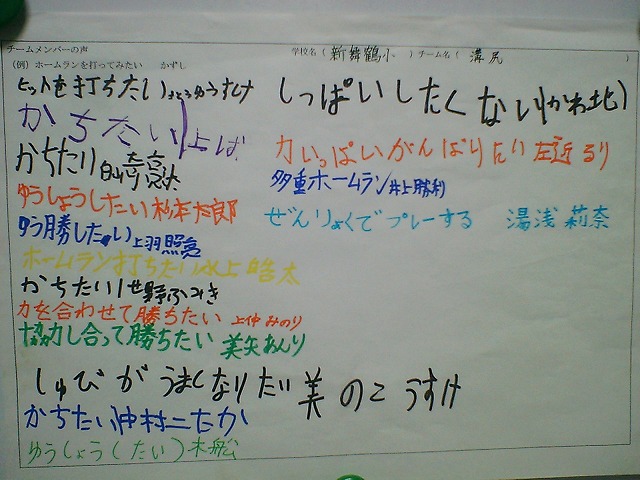 チームメンバーの声
学校名（新舞鶴小）チーム名（溝尻）
（例）ホームランを打ってみたい　かずし
ヒットを打ちたい。さとうゆうすけ
かちたい
かちたい
ゆうしょうしたい 杉本太郎
ゆう勝したい 上羽照
ホームラン打ちたい 水上皓太
かちたい
力を合わせて勝ちたい 上仲みのり
協力し合って勝ちたい 美矢あんり
しゅびがうまくなりたい 美のこうすけ
かちたい 仲村
ゆうしょう（したい）木船
しっぱいしたくない（かわ北）
力いっぱいがんばりたい 左近るり
多重ホームラン 井上勝利
ぜんりょくでプレーする 湯浅莉奈